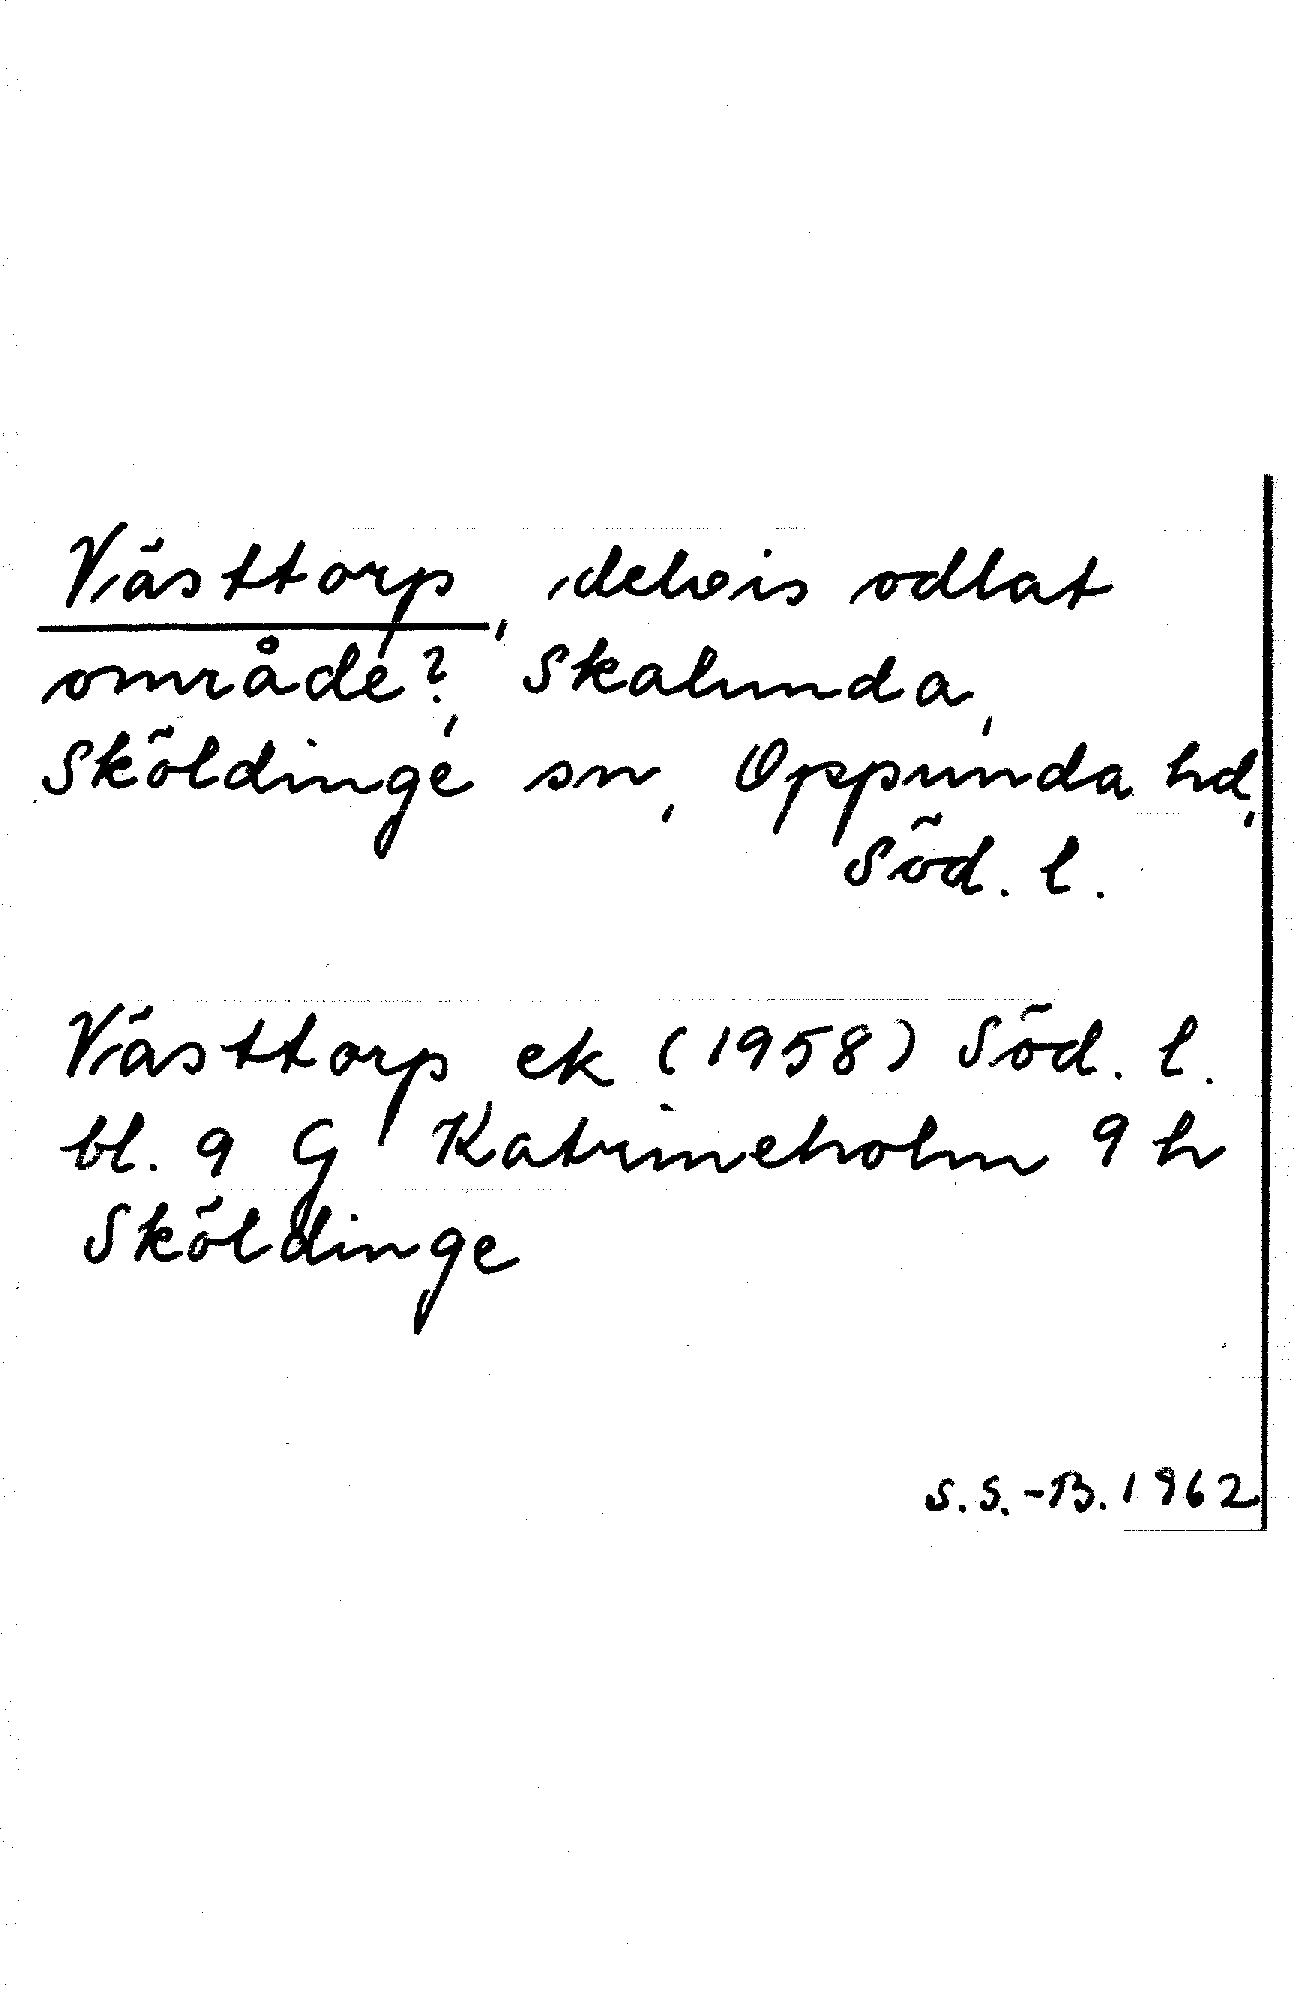 Västtorp, delvis odlat
område?, Skalunda,
Sköldinge sn, Oppunda hd,
Söd. l.
Västtorp ek (1958) Söd. l.
bl. 9 G Katrineholm 9 h
Sköldinge
S.S.-B. 1962